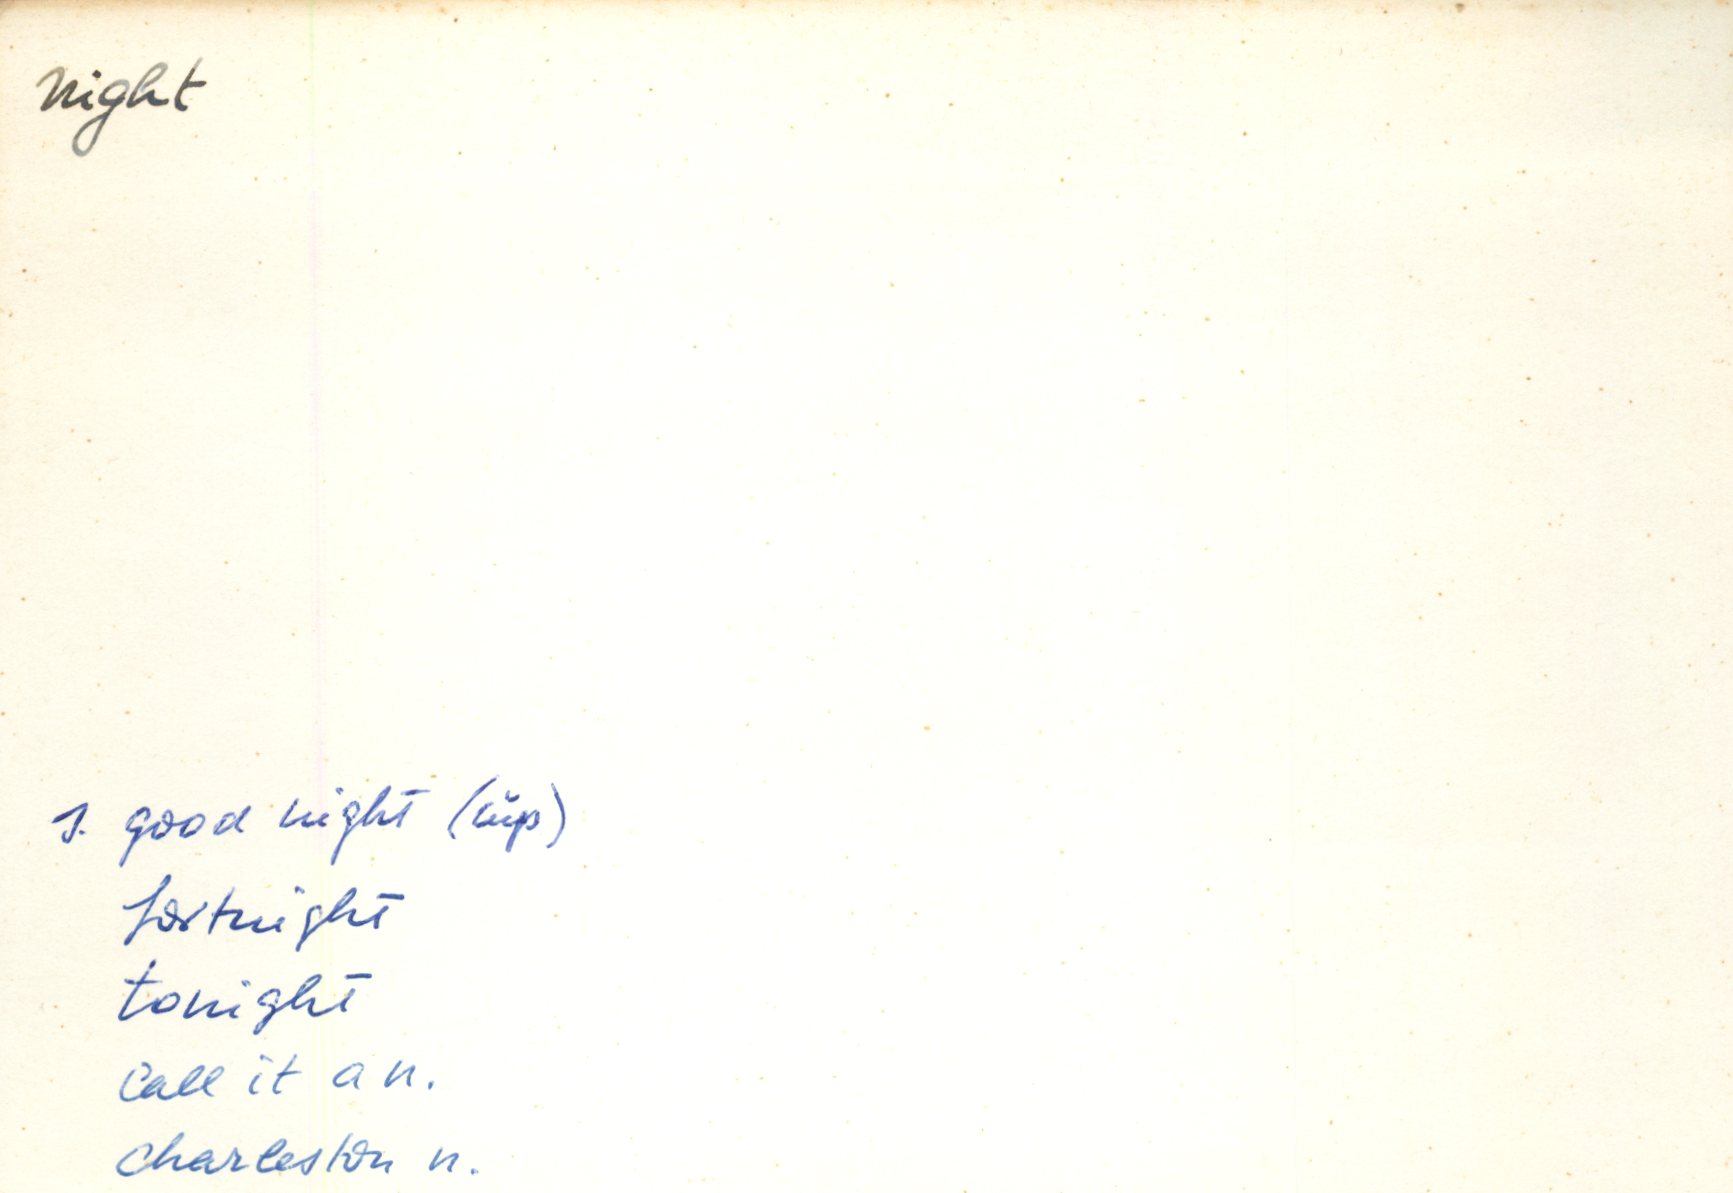 night
s. good night (cup)
fortnight
tonight
call it a n.
charleston n.